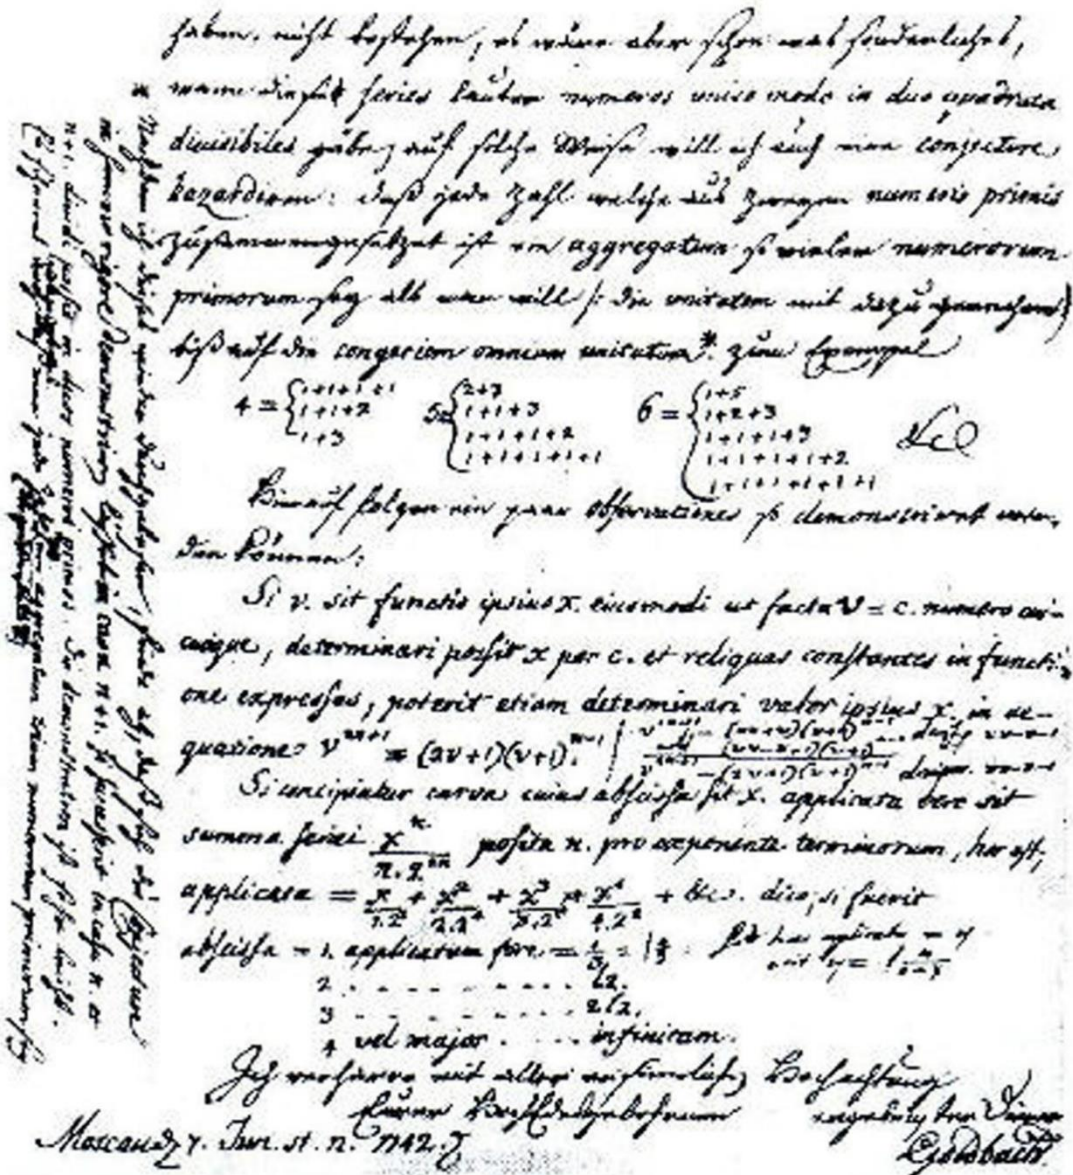 haben, nicht bestehen, es wäre aber schon was sonderliches,
wann eine series lauter numeros unico modo in duo quadrata
divisibiles gäbe, auf solche Weise will ich auch eine conjecture
hazardiren: daß jede Zahl welche aus zweyen numeris primis
zusammengesetzet ist ein aggregatum so vieler numerorum
primorum sey als man will /: die unitatem mit dazu gerechnet
biß auf die congeriem omnium unitatum*. zum Exempel
4 = { 1+1+1+1
1+1+2
1+3
5 = { 2+3
1+1+3
1+1+1+2
1+1+1+1+1
6 = { 1+5
1+2+3
1+1+1+3
1+1+1+1+2
1+1+1+1+1+1
&c
Hierauf folgen ein paar observationes so demonstriret wer-
den können:
Si v. sit functio ipsius x. eiusmodi ut facta v = c. numero cui-
cuique, determinari possit x per c. et reliquas constantes in functi-
one expressas, poterit etiam determinari valor ipsius x. in ae-
quatione v^2n+1 = (2v+1)(v+1)^n-1.
Si concipiatur curva cuius abscissa sit x. applicata vero sit
summa seriei x^n/n.2^2n posita n. pro exponente terminorum, hoc est,
applicata = x/1.2^2 + x^2/2.2^4 + x^3/3.2^6 + x^4/4.2^8 + &c. dico, si fuerit
abscissa = 1. applicatam fore =
2 . . . . . . . . l2.
3 . . . . . . . . 2l2.
4 vel major . . . . infinitam.
Ich verharre mit aller Hochachtung
Eurer HochEdelgebohrnen ergebenster Diener
Goldbach
Moscau d. 7. Jun. st. n. 1742.
* Nachdem ich dieses wieder durchgelesen finde ich, daß sich die Conjecture
in summo rigore demonstriren lässet in casu n+1. si successerit in casu n. et
n+1. dividi possit in duos numeros primos. Die demonstration ist sehr leicht.
Es scheinet daß eine jede Zahl aggregatum trium numerorum primorum sey